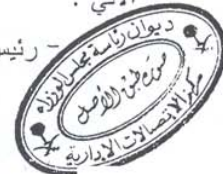 الآتي :
- رئيس
ديوان رئاسة مجلس الوزراء
صورة طبق الأصل
مركز الاتصالات الإدارية